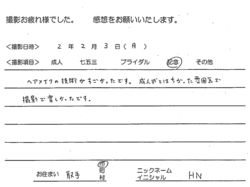 撮影お疲れ様でした。 感想をお願いいたします。
<撮影日時> 2年2月3日(月)
<撮影項目> 成人 七五三 ブライダル 記念 その他
ヘアメイクの技術がすごかったです。成人式とはちがった雰囲気で
撮影で楽しかったです。
お住まい 取手 市 町 村 ニックネーム イニシャル HN